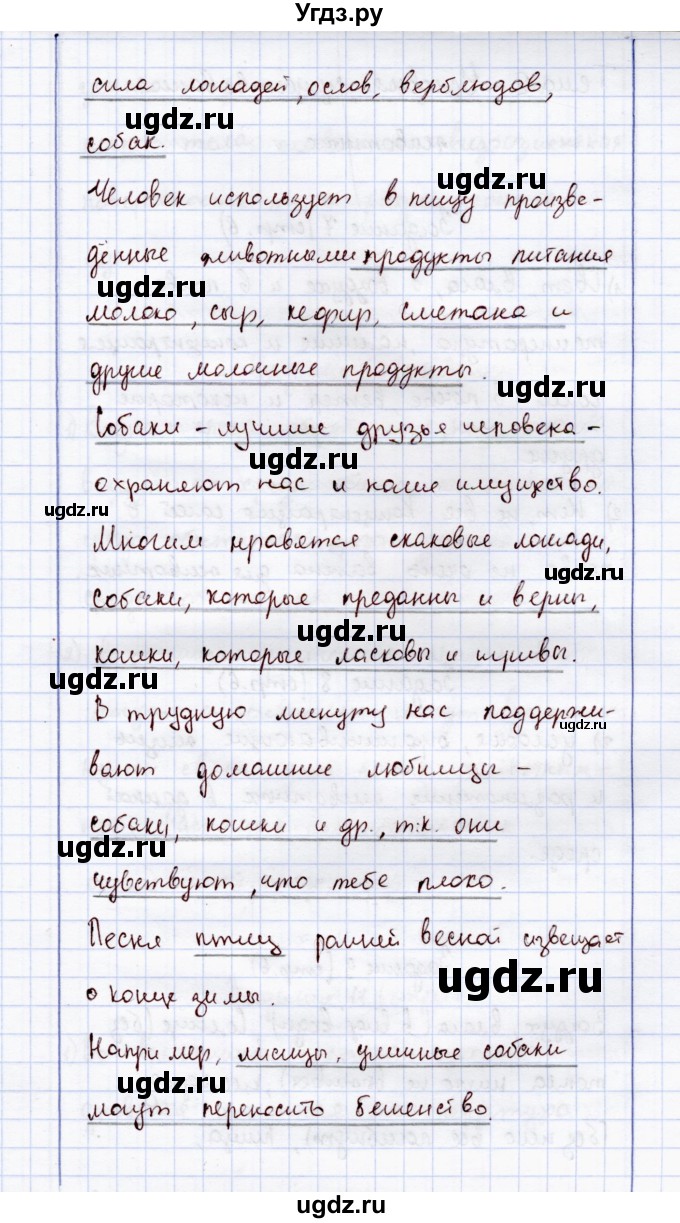 Угдз.ру
сила лошадей, ослов, верблюдов,
ugdz.ru
ugdz.ru
собак.
ugdz.ru
Человек использует в пищу произве-
дённые животными продукты питания
ugdz.ru
молоко, сыр, кефир, сметана и
другие молочные продукты.
ugdz.ru
Собаки - лучшие друзья человека -
ugdz.ru
охраняют нас и наше имущество.
ugdz.ru
Многим нравятся скаковые лошади,
ugdz.ru
собаки, которые преданны и верны,
ugdz.ru
кошки, которые ласковы и игривы.
ugdz.ru
В трудную минуту нас поддержи-
ugdz.ru
вают домашние любимцы -
собаки, кошки и др., т.к. они
ugdz.ru
чувствуют, что тебе плохо.
Песня птиц ранней весной извещает
ugdz.ru
о конце зимы.
Например, лисицы, уличные собаки
ugdz.ru
могут переносить бешенство.
ugdz.ru
ugdz.ru